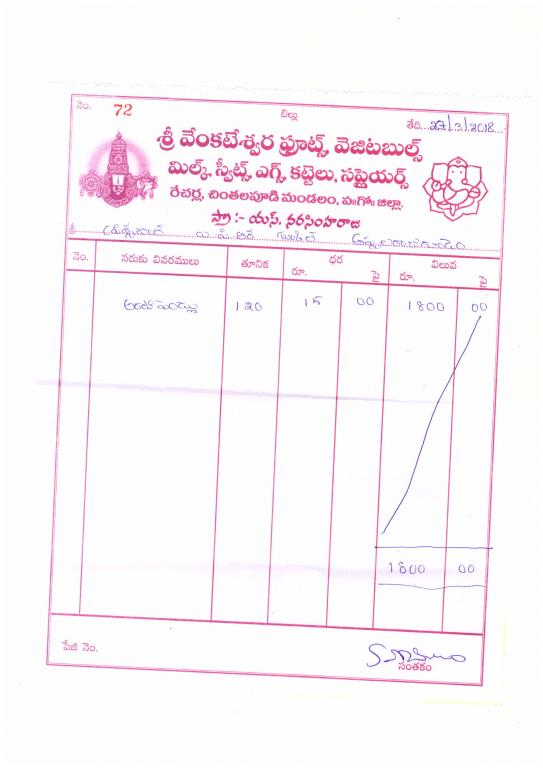 నెం. 72 బిల్లు తేది...27/3/2018...
శ్రీ వేంకటేశ్వర ఫ్రూట్స్, వెజిటబుల్స్
మిల్క్, స్వీట్స్, ఎగ్స్, కట్టెలు, సప్లైయర్స్
రేచర్ల, చింతలపూడి మండలం, ప॥గో॥ జిల్లా.
ప్రొ :- యస్. నరసింహరాజు
శ్రీ
నెం. సరుకు వివరములు తూనిక ధర విలువ
రూ. పై రూ. పై
అరటి పండ్లు 120 15 00 1800 00
1800 00
పేజి నెం.
సంతకం